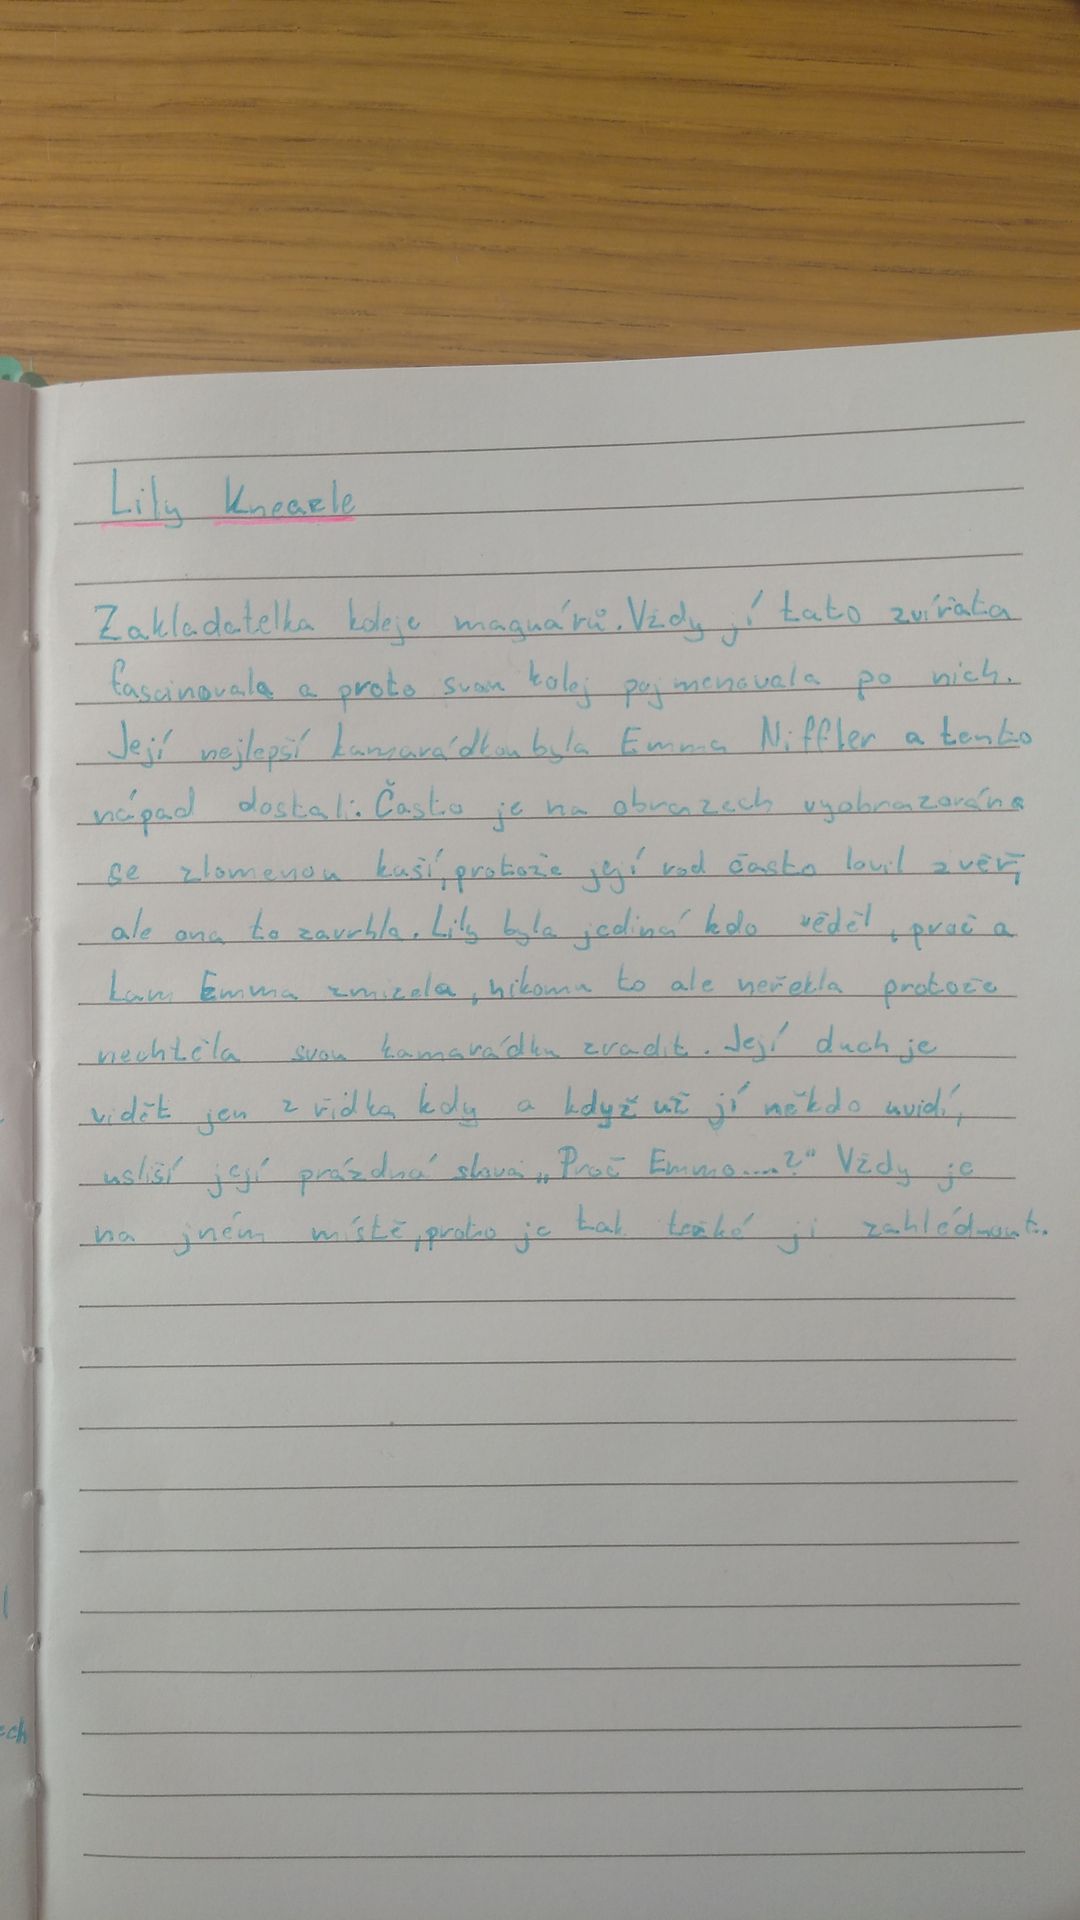 Lily Kneazle
Zakladatelka koleje maguárů. Vždy jí tato zvířata
fascinovala a proto svou kolej pojmenovala po nich.
Její nejlepší kamarádkou byla Emma Niffler a tento
nápad dostali. Často je na obrazech vyobrazována
se zlomenou kuší, protože její rod často lovil zvěř,
ale ona to zavrhla. Lily byla jediná kdo věděl, proč a
kam Emma zmizela, nikomu to ale neřekla protože
nechtěla svou kamarádku zradit. Její duch je
vidět jen z řídka kdy a když už jí někdo uvidí,
usliší její prázdná slova „Proč Emmo....?“ Vždy je
na jném místě, proto je tak težké ji zahlédnout.
ech